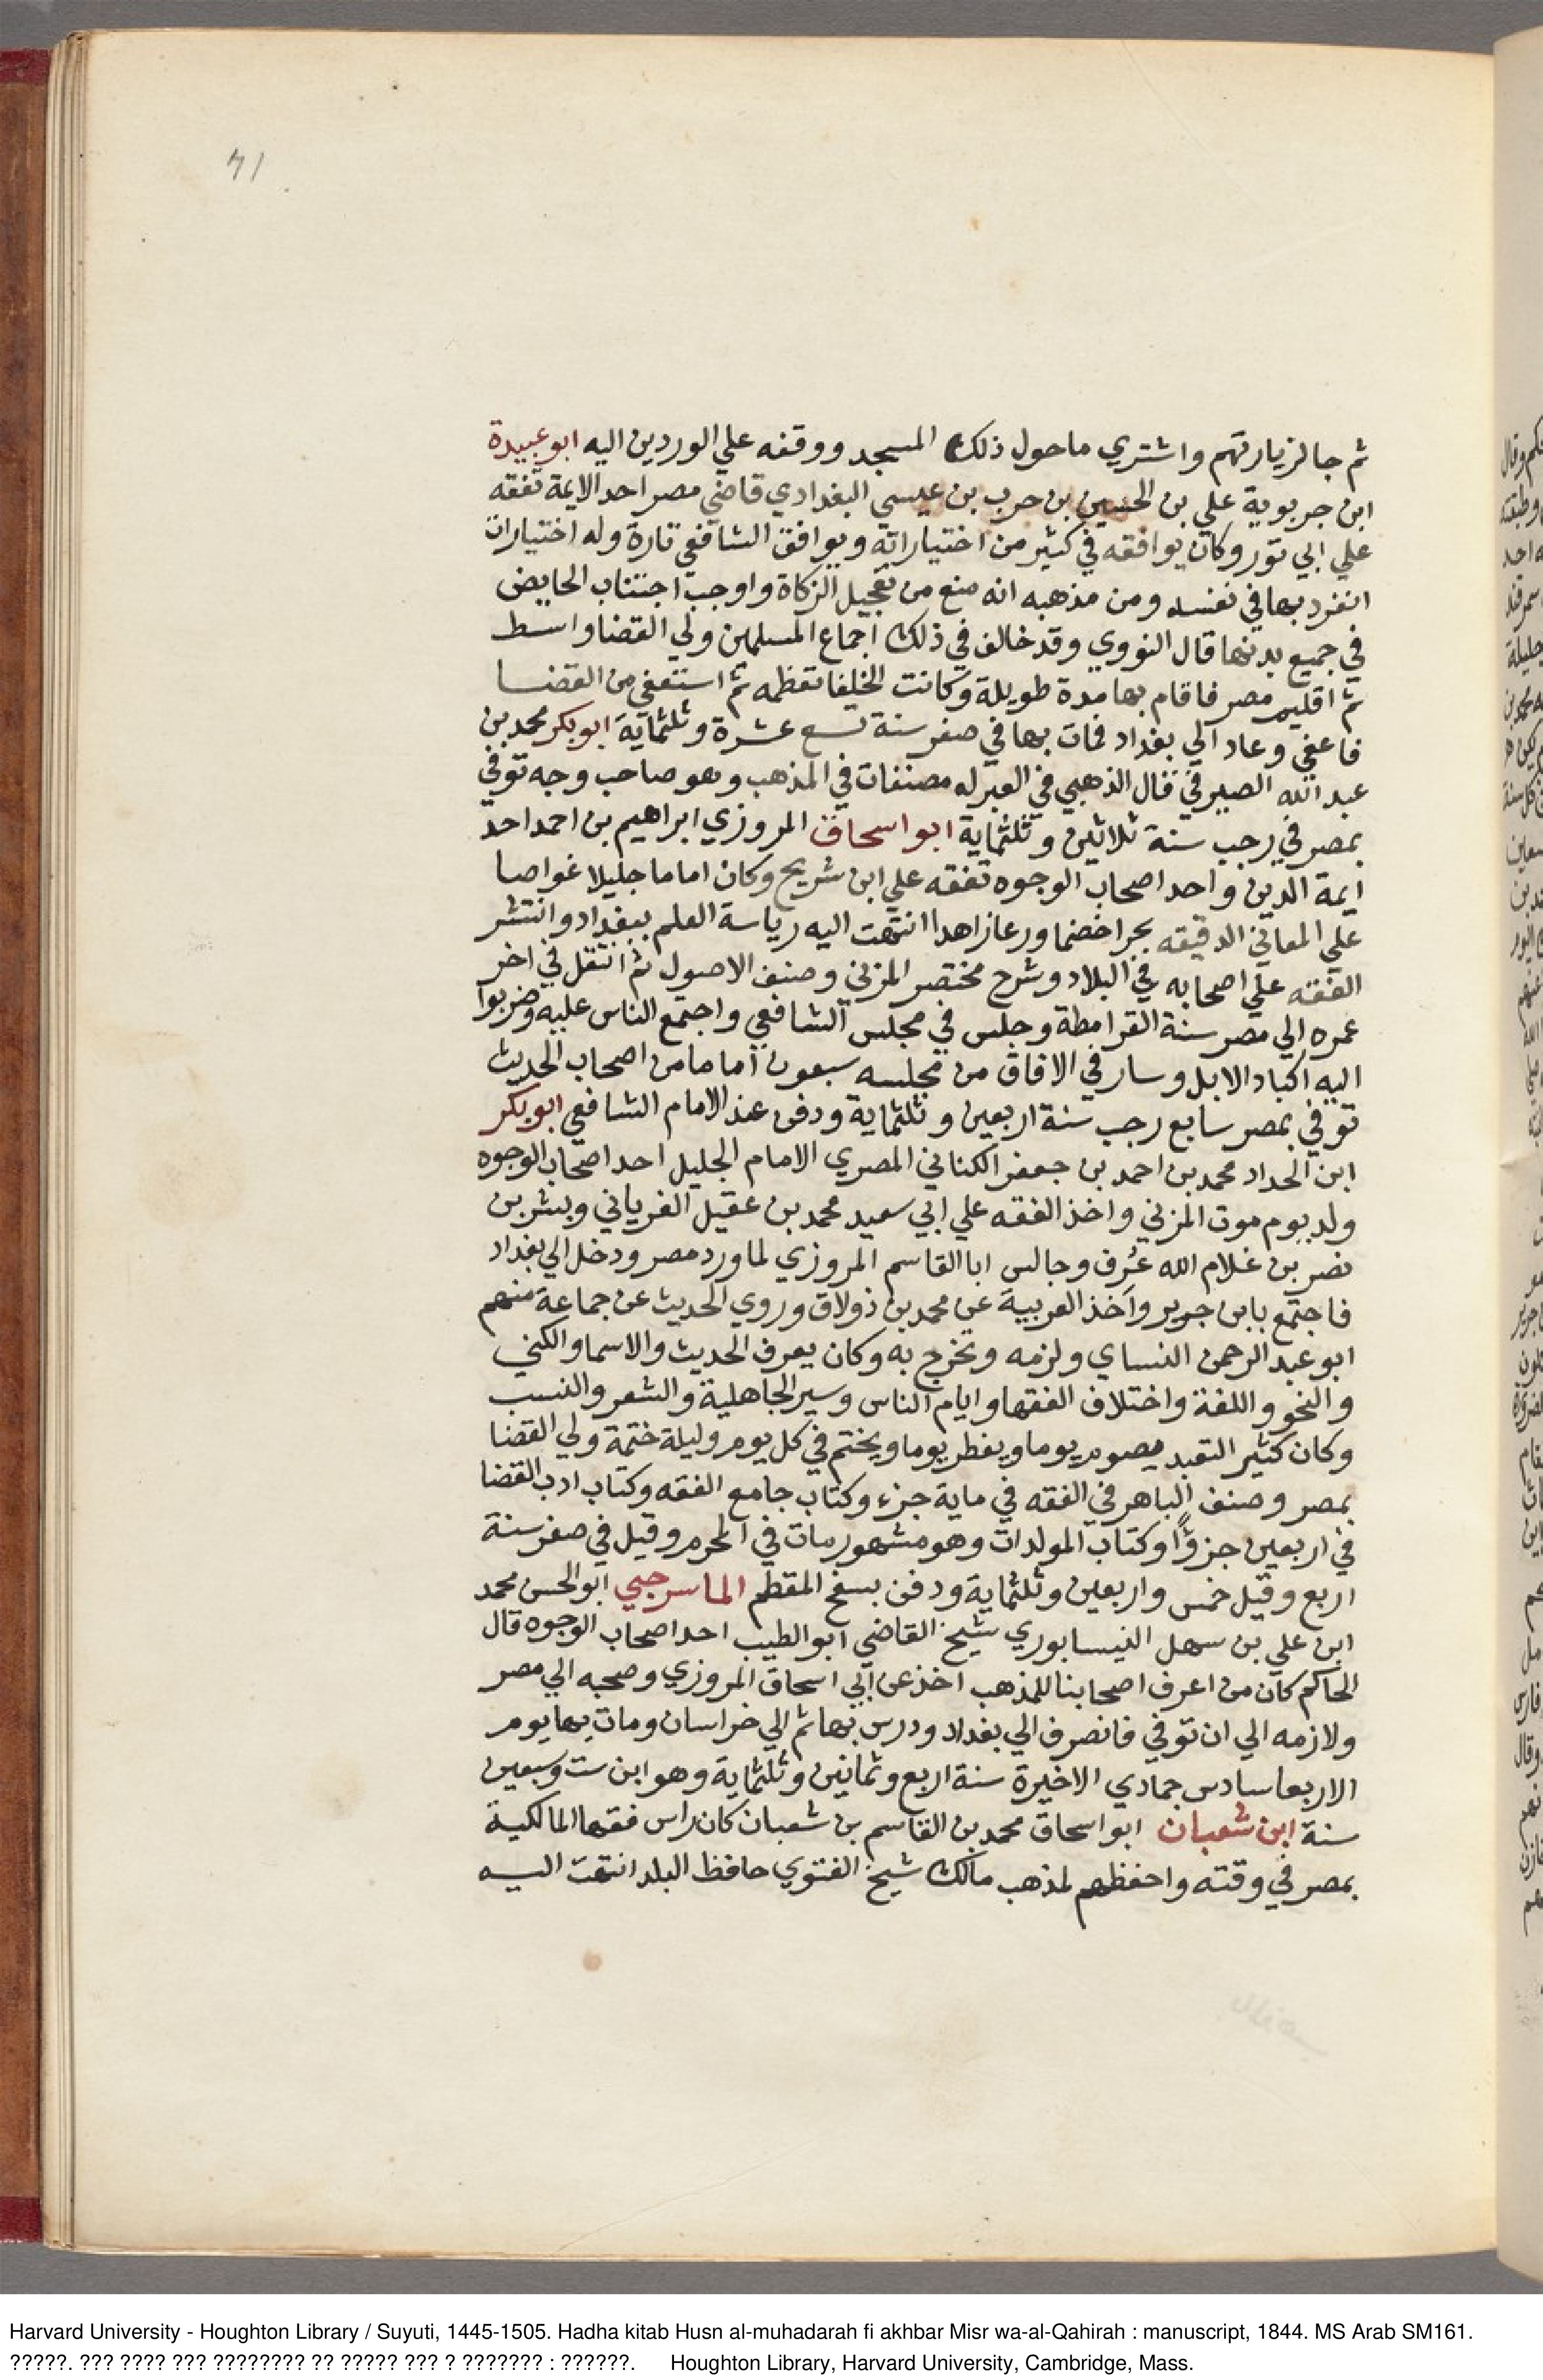 71
ثم جا لزيارتهم واشتري ماحول ذلك المسجد ووقفه علي الوردين اليه ابو عبيدة
ابن جربوية علي بن الحسين بن حرب بن عيسي البغدادي قاضي مصر احد الايمة تفقه
علي ابي ثور وكان يوافقه في كثير من اختياراته ويوافق الشافعي تارة وله اختيارات
انفرد بها في نفسه ومن مذهبه انه منع من تعجيل الزكاة واوجب اجتناب الحايض
في جميع بدنها قال النووي وقد خالف في ذلك اجماع المسلمين ولي القضا واسط
ثم اقليم مصر فاقام بها مدة طويلة وكانت الخلفا تعظمه ثم استعفي من القضا
فاعفي وعاد الي بغداد فمات بها في صفر سنة تسع عشرة وثلثماية ابو بكر محمد بن
عبد الله الصيرفي قال الذهبي في العبر له مصنفات في المذهب وهو صاحب وجه توفي
بمصر في رجب سنة ثلاثين وثلثماية ابو اسحاق المروزي ابراهيم بن احمد احد
ايمة الدين واحد اصحاب الوجوه تفقه علي ابن شريح وكان اماما جليلا غواصا
علي المعاني الدقيقه بحرا خضما ورعا زاهدا انتهت اليه رياسة العلم ببغداد وانتشر
الفقه علي اصحابه في البلاد وشرح مختصر المزني وصنف الاصول ثم انتقل في اخر
عمره الي مصر سنة القرامطة وجلس في مجلس الشافعي واجتمع الناس عليه وضربوا
اليه اكباد الابل وسار في الافاق من مجلسه سبعون اماما من اصحاب الحديث
توفي بمصر سابع رجب سنة اربعين وثلثماية ودفن عند الامام الشافعي ابو بكر
ابن الحداد محمد بن احمد بن جعفر الكناني المصري الامام الجليل احد اصحاب الوجوه
ولد يوم موت المزني واخذ الفقه علي ابي سعيد محمد بن عقيل الفرياني وبشر بن
نصر بن غلام الله عُرف وجالس ابا القاسم المروزي لما ورد مصر ودخل الي بغداد
فاجتمع بابن جرير واخذ العربية عن محمد بن ذولاق وروي الحديث عن جماعة منهم
ابو عبد الرحمن النساي ولزمه وتخرج به وكان يعرف الحديث والاسما والكني
والنحو واللغة واختلاف الفقها وايام الناس وسير الجاهلية والشعر والنسب
وكان كثير التعبد يصوم يوما ويفطر يوما ويختم في كل يوم وليلة ختمة ولي القضا
بمصر وصنف الباهر في الفقه في ماية جزء وكتاب جامع الفقه وكتاب ادب القضا
في اربعين جزؤًا وكتاب المولدات وهو مشهور مات في المحرم وقيل في صفر سنة
اربع وقيل خمس واربعين وثلثماية ودفن بسفح المقطم الماسرجبي ابو الحسن محمد
ابن علي بن سهل النيسابوري شيخ القاضي ابو الطيب احد اصحاب الوجوه قال
الحاكم كان من اعرف اصحابنا للمذهب اخذ عن ابي اسحاق المروزي وصحبه الي مصر
ولازمه الي ان توفي فانصرف الي بغداد ودرس بها ثم الي خراسان ومات بها يوم
الاربعا سادس جمادي الاخيرة سنة اربع وثمانين وثلثماية وهو ابن ست وسبعين
سنة ابن شعبان ابو اسحاق محمد بن القاسم بن شعبان كان راس فقها المالكية
بمصر في وقته واحفظهم لمذهب مالك شيخ الفتوي حافظ البلد انتهت اليه
Harvard University - Houghton Library / Suyuti, 1445-1505. Hadha kitab Husn al-muhadarah fi akhbar Misr wa-al-Qahirah : manuscript, 1844. MS Arab SM161.
?????. ??? ???? ??? ???????? ?? ????? ??? ? ??????? : ??????. Houghton Library, Harvard University, Cambridge, Mass.